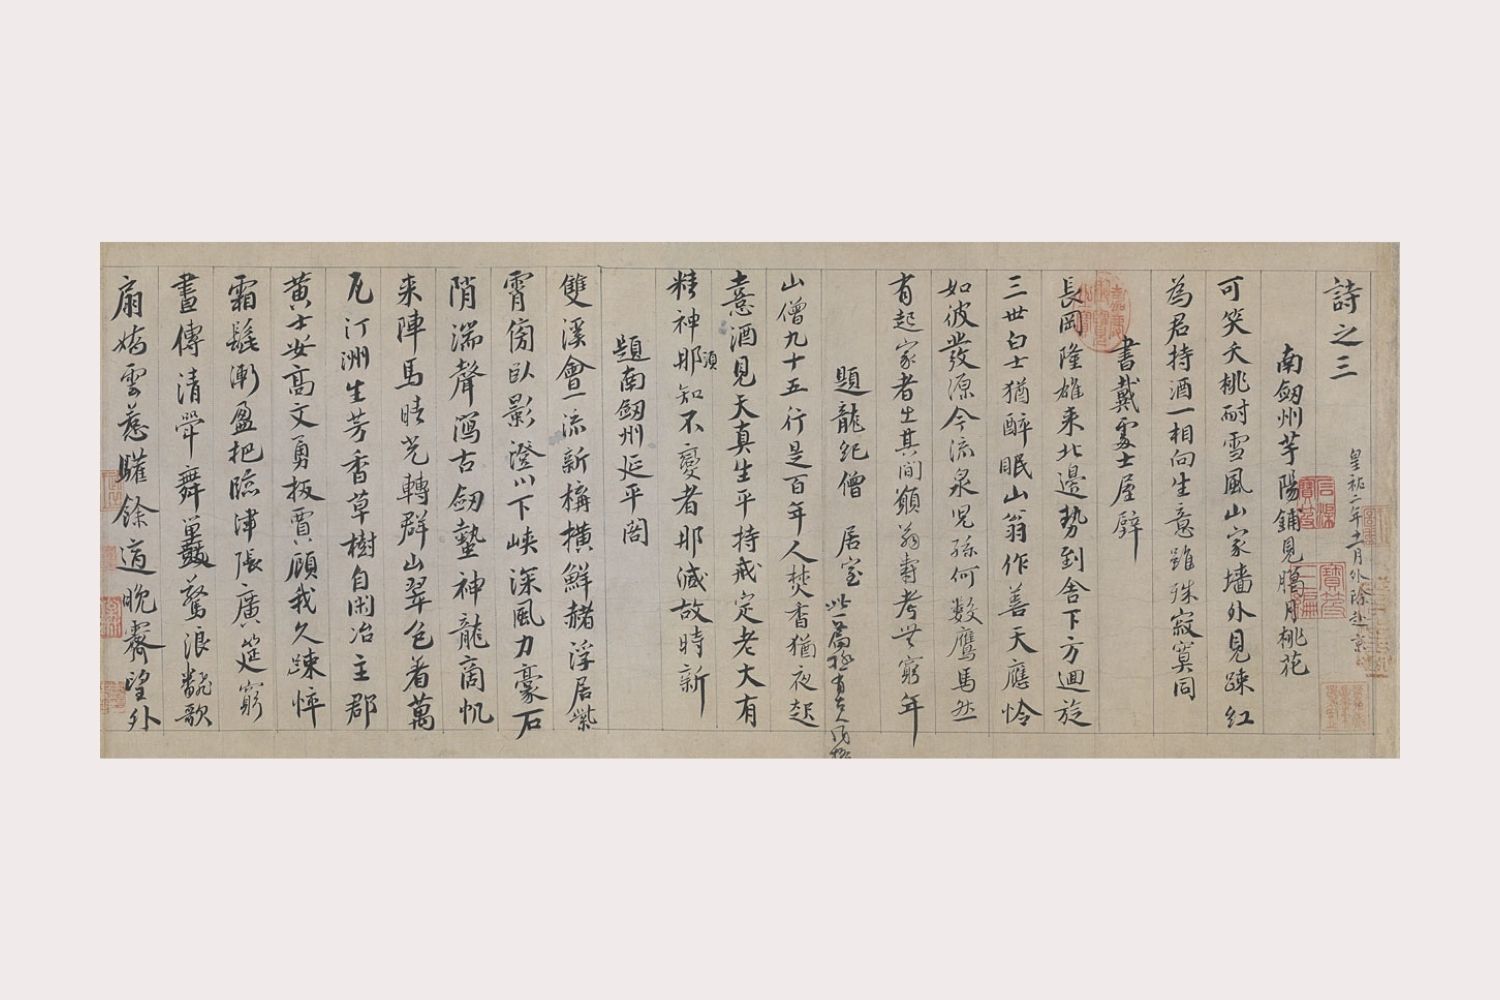 詩之三
皇祐二年十一月外除赴京
南劔州芋陽鋪見臘月桃花
可笑夭桃耐雪風山家墻外見踈紅
為君持酒一相向生意雖殊寂寞同
書戴處士屋壁
長岡隆雄来北邊勢到舍下方迴旋
三世白士猶醉眠山翁作善天應怜
如彼發源今流泉児孫何數鷹馬然
有起家者出其間願翁壽考無窮年
題龍紀僧居室
此一篇極有古人風格
山僧九十五行是百年人焚香猶夜起
憙酒見天真生平持戒定老大有
精神
須
那知不變者那減故時新
題南劔州延平閣
雙溪會一流新構横鮮赭浮居紫
霄傍卧影澄川下峡深風力豪石
陗湍聲瀉古劔蟄神龍商帆
来陣馬晴光轉群山翠色着萬
瓦汀洲生芳香草樹自閑冶主郡
黄士安高文勇扳賈顧我久踈悴
霜髭漸盈把臨津張廣筵窮
晝傳清斝舞鼉驚浪飜歌
扇嬌雲惹驩餘適晚霽望外